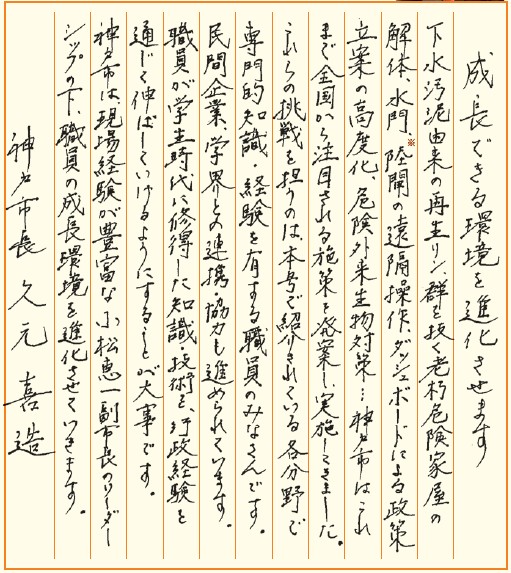 成長できる環境を進化させます
下水汚泥由来の再生リン、群を抜く老朽危険家屋の
解体、水門、陸閘※の遠隔操作、ダッシュボードによる政策
立案の高度化、危険外来生物対策…神戸市はこれ
まで全国から注目される施策を発案し実施してきました。
これらの挑戦を担うのは、本号で紹介されている各分野で
専門的知識・経験を有する職員のみなさんです。
民間企業、学界との連携、協力も進められています。
職員が学生時代に修得した知識・技術を、行政経験を
通じて伸ばしていけるようにすることが大事です。
神戸市は、現場経験が豊富な小松恵一副市長のリーダー
シップの下、職員の成長環境を進化させていきます。
神戸市長 久元 喜造